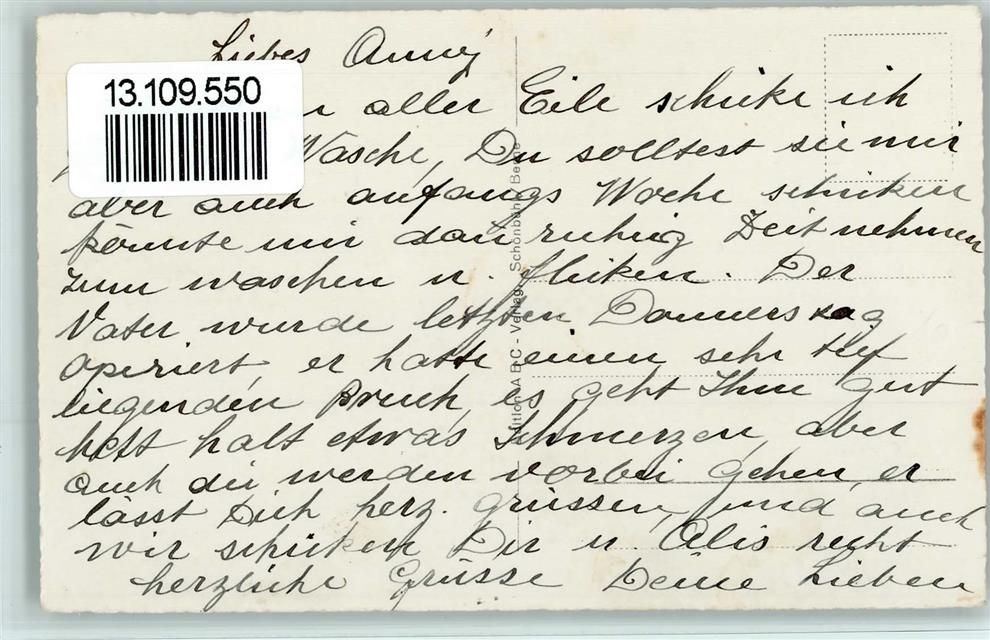 Liebes Anny
13.109.550
aller Eile schicke ich
Wäsche, Du solltest sie mir
aber auch anfangs Woche schicken
könnte mir dan ruhig Zeit nehmen
zum waschen u. flicken. Der
Vater wurde letzten Donnerstag
operiert, er hatte einen sehr tief
liegenden Bruch, es geht Ihm gut
hett halt etwas Schmerzen, aber
auch die werden vorbei gehen, er
lässt Dich herz. grüssen, und auch
wir schicken Dir u. Alis recht
herzliche Grüsse Deine Lieben
Edition A B C - Verlag, Schönbühl,